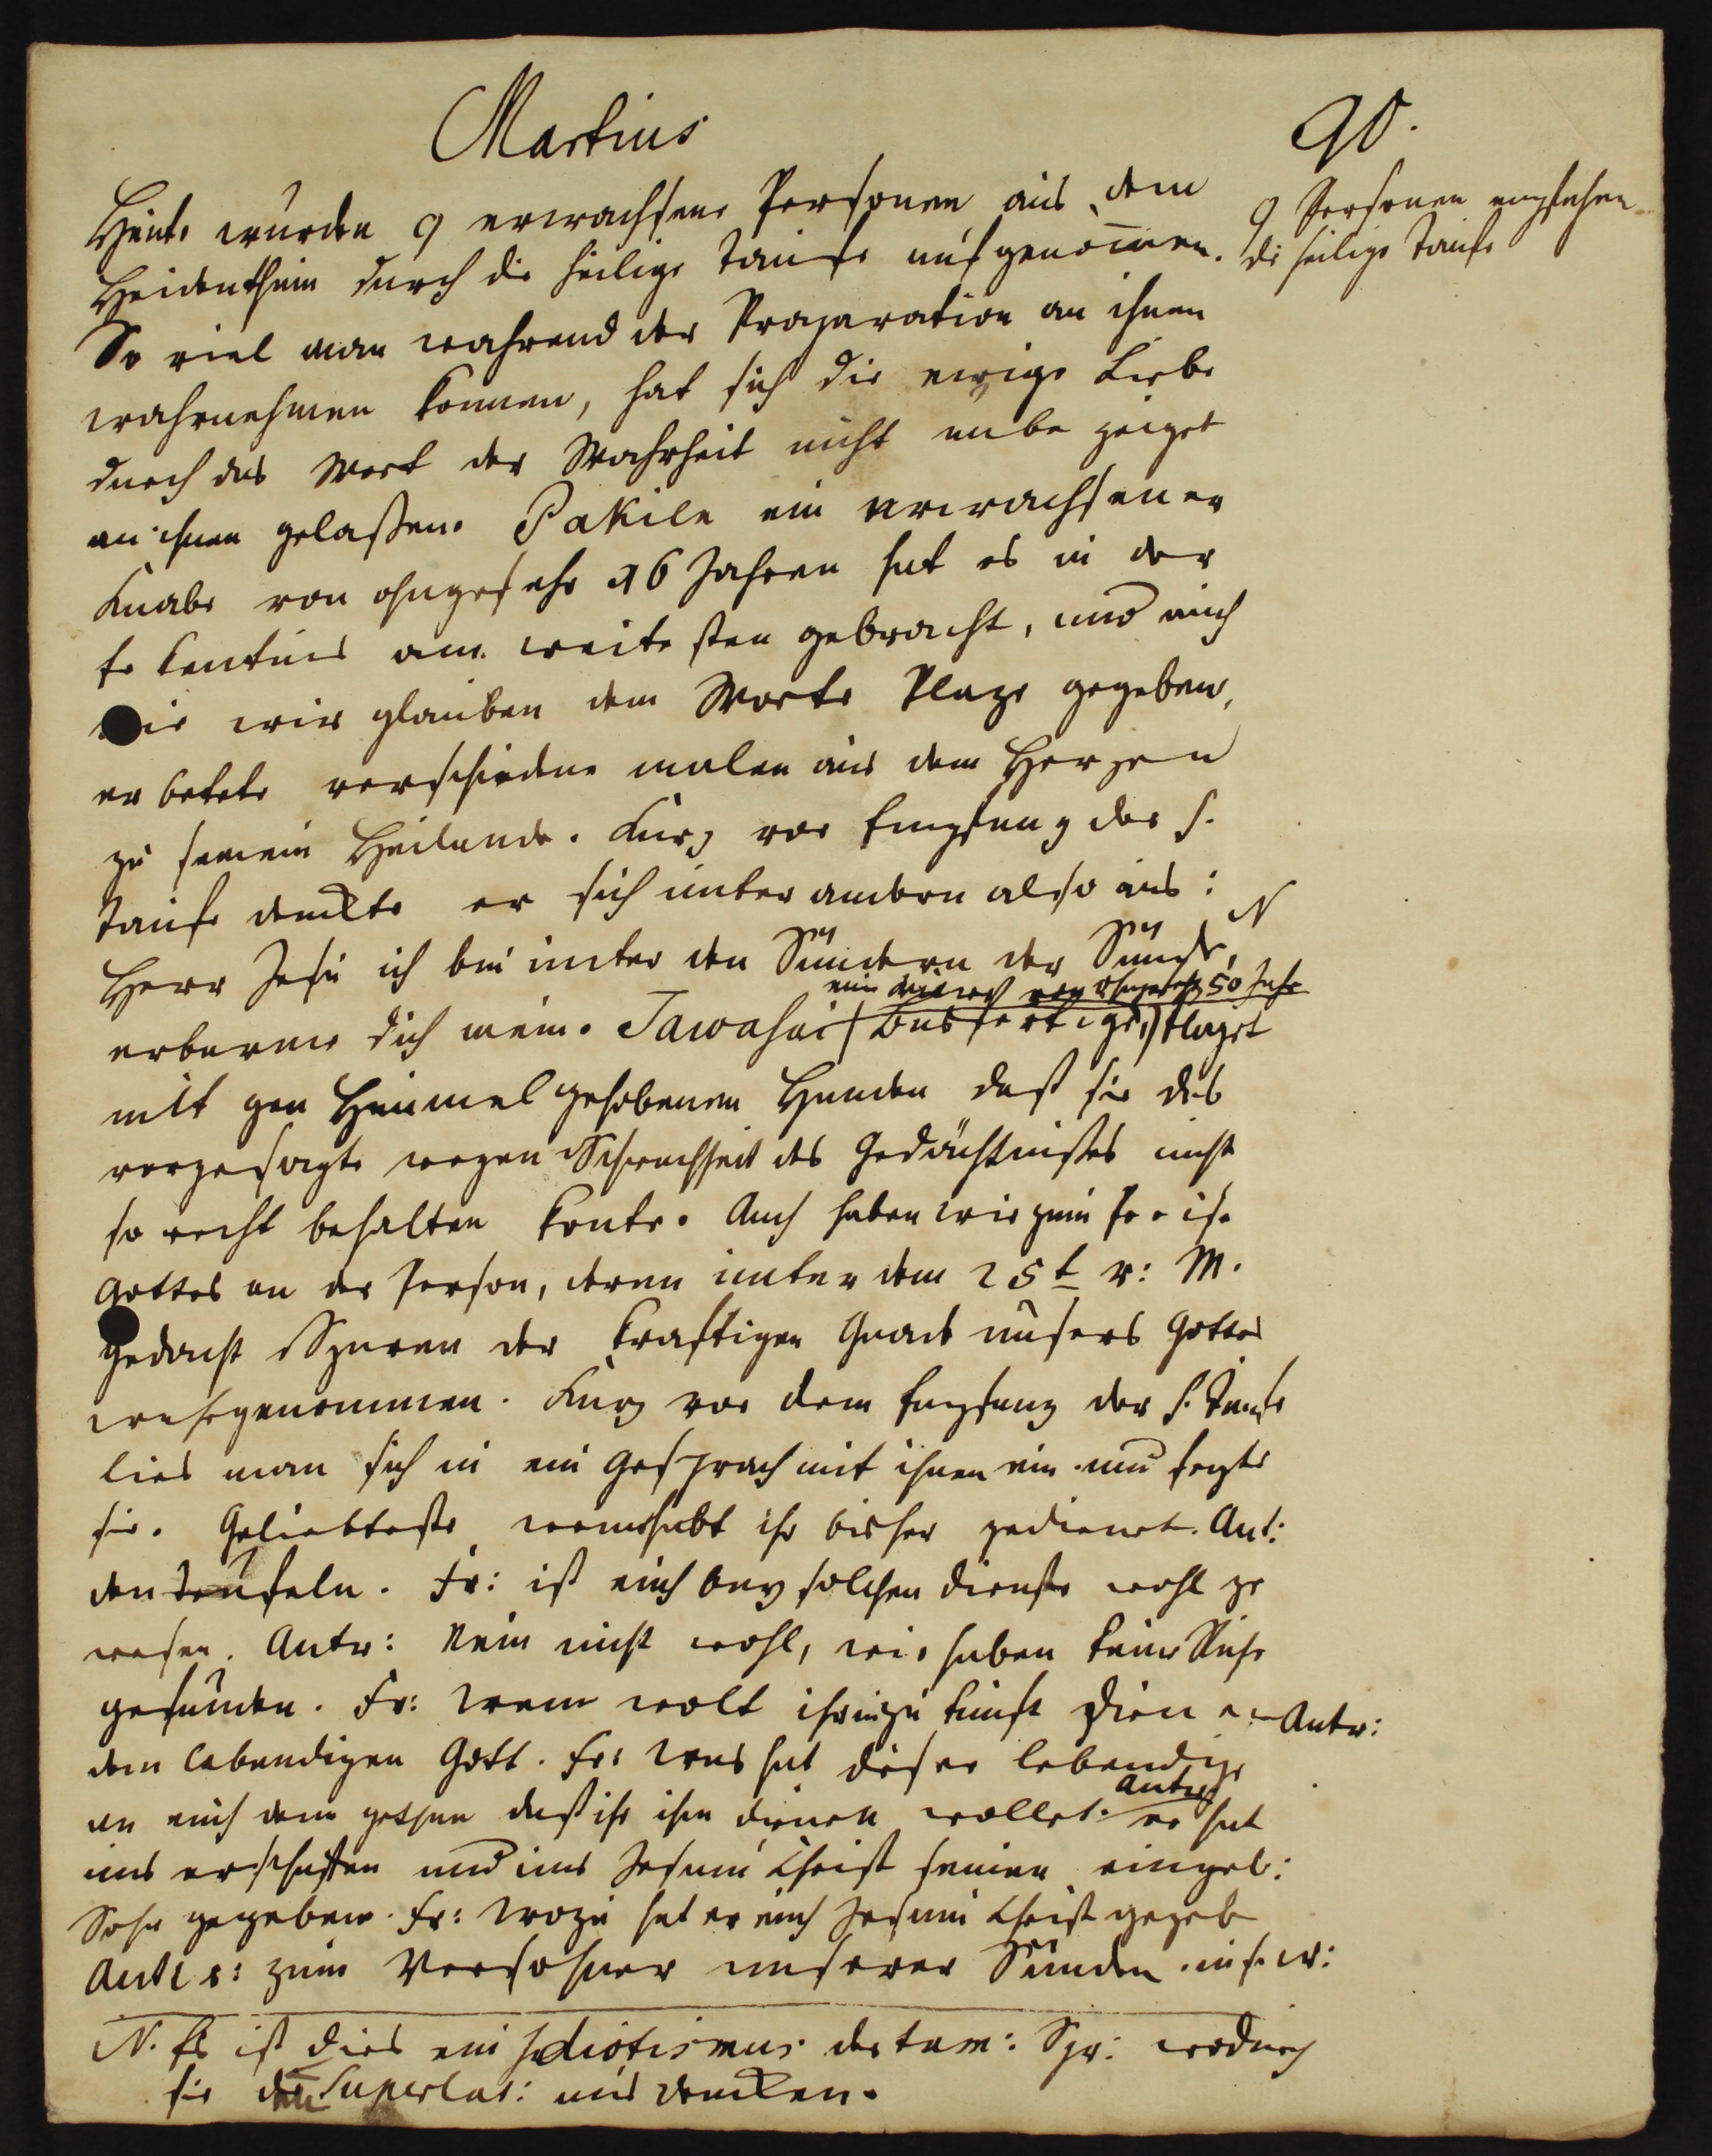 Martius
90.
Heute wurden 9 erwachsene Personen aus dem
Heidenthum durch die heilige Taufe aufgenom̅en.
9 Personen empfahen
die heilige Taufe
So viel man wahrend der Praparation an ihnen
wahrnehmen konnen, hat sich die ewige Liebe
durch das Wort der Wahrheit nicht unbezeiget
an ihnen gelaßen. Pakile ein erwachsener
Knabe von ohngefehr 16 Jahren hat es in der
Erkentnis am weitesten gebracht, und auch
wie wir glauben dem Worte Plaze gegeben,
er betete verschiedene malen aus dem Herzen
zu seinem Heilande. Kurz vor Empfang der h.
Taufe druckte er sich unter andern also aus:
Herr Jesu ich bin unter den Sündern der Sünder, N
ein Weib von ohngefehr 50 Jahr
erbarme dich mein. Tawasai (busfertige,) klaget
mit gen Himmel gehobenen Handen daß sie das
vorgesagte wegen Schwachheit des Gedächtnißes nicht
so recht behalten konte. Auch haben wir zum Preise
Gottes an der Person, deren unter dem 25t v: M.
gedacht Spuren der kraftigen Gnade unsers Gottes
wahrgenommen. Kurz vor dem Empfang der h. Taufe
lies man sich in ein Gesprach mit ihnen ein und fragte
sie. Geliebteste wem habt ihr bisher gedienet. Ant:
den Teufeln. Fr: ist euch bey solchen Dienste wohl ge
wesen. Antw: Nein nicht wohl, wir haben keine Ruhe
gefunden. Fr: Wem wolt ihr inzukunft dienen Antw:
dem lebendigen Gott. Fr: Was hat dieser lebendige
an euch denn gethan daß ihr ihm dienen wollet. Antw er hat
uns erschaffen und uns Jesum Christ seinen eingeb:
Sohn gegeben. Fr: Wozu hat er euch Jesum Christ gegeb
Antw: zum Versohner unserer Sünden. u. s. w:
N. Es ist dies ein Idiotismus der tam: Spr: wodurch
sie den Superlat: aus drucken.